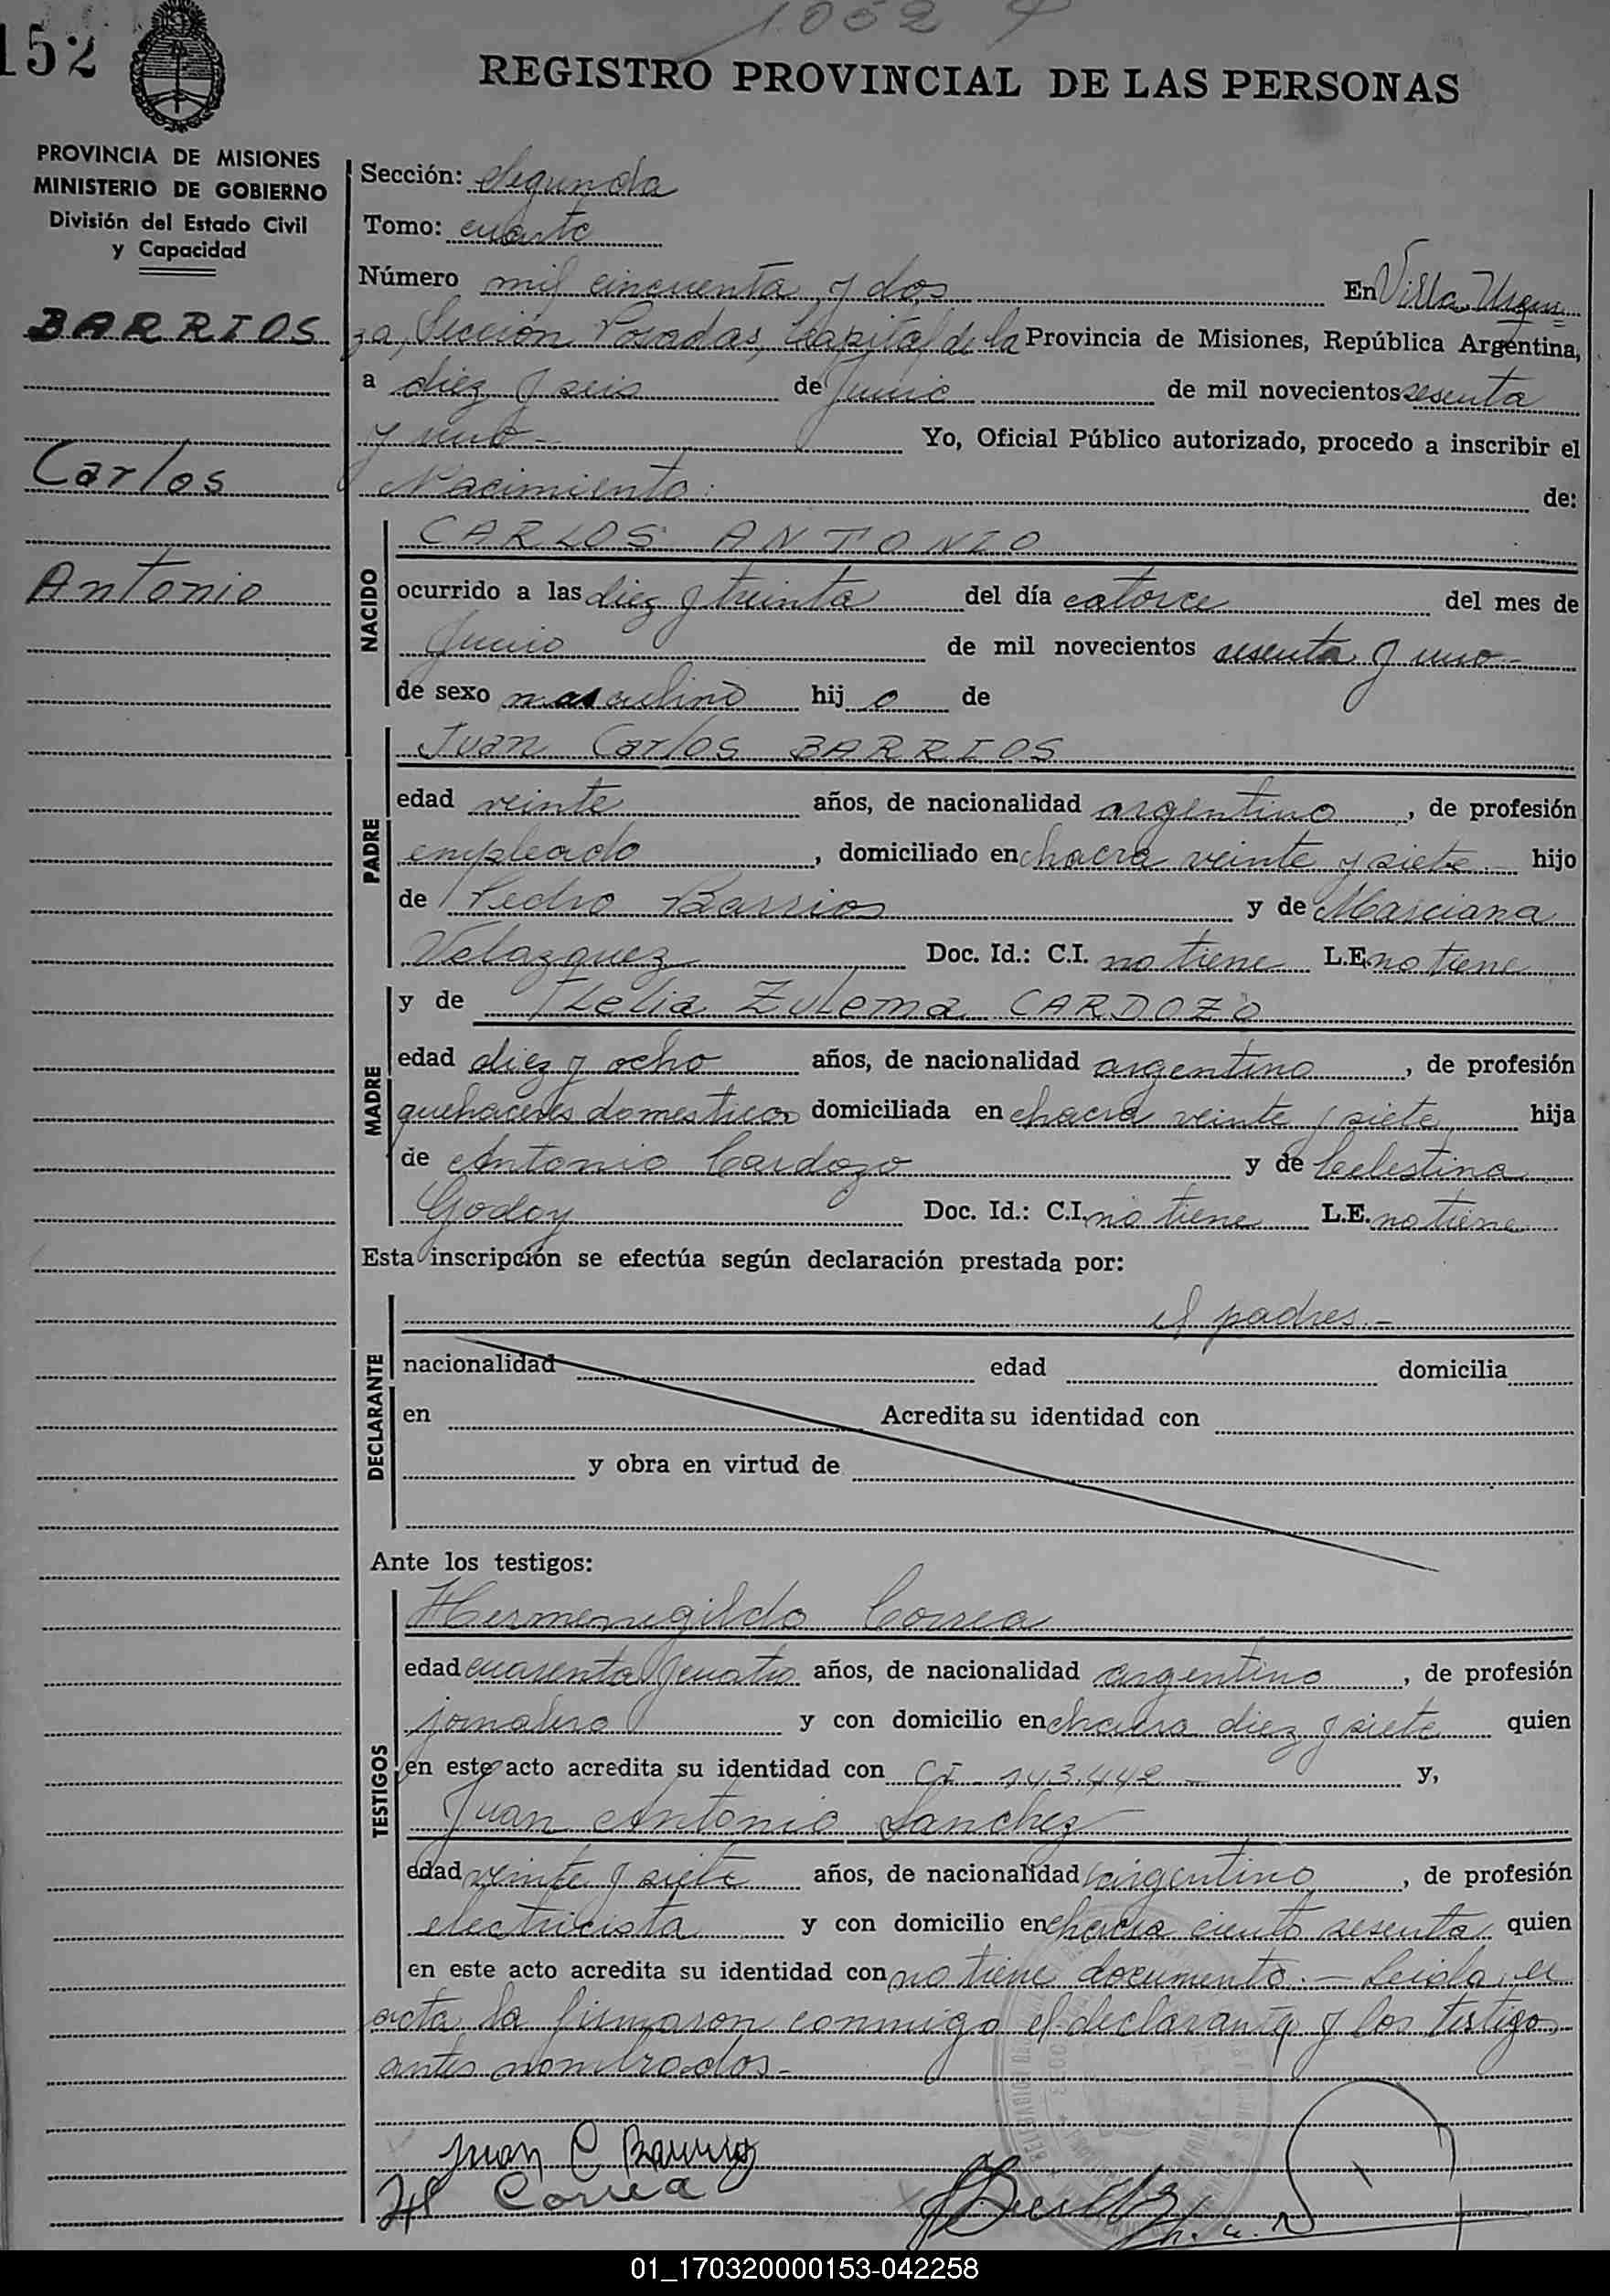 1052
152
REGISTRO PROVINCIAL DE LAS PERSONAS
PROVINCIA DE MISIONES
MINISTERIO DE GOBIERNO
División del Estado Civil
y Capacidad
BARRIOS
Carlos
Antonio
Sección: Segunda
Tomo: cuarto
Número mil cincuenta y dos En Villa Urqui=
za, Sección Posadas, Capital de la Provincia de Misiones, República Argentina,
a diez y seis de Junio de mil novecientos sesenta
y uno- Yo, Oficial Público autorizado, procedo a inscribir el
Nacimiento: de:
NACIDO
CARLOS ANTONIO
ocurrido a las diez y treinta del día catorce del mes de
Junio de mil novecientos sesenta y uno-
de sexo masculino hijo de
PADRE
Juan Carlos BARRIOS
edad veinte años, de nacionalidad argentino, de profesión
empleado, domiciliado en chacra veinte y siete- hijo
de Pedro Barrios y de Marciana
Velazquez Doc. Id.: C.I. no tiene L.E. no tiene
MADRE
y de Zulema CARDOZO
edad diez y ocho años, de nacionalidad argentina, de profesión
quehaceres domesticos domiciliada en chacra veinte y siete hija
de Antonio Cardozo y de Celestina
Godoy Doc. Id.: C.I. no tiene L.E. no tiene
Esta inscripción se efectúa según declaración prestada por:
DECLARANTE
el padres.-
nacionalidad edad domicilia
en Acredita su identidad con
y obra en virtud de
Ante los testigos:
TESTIGOS
Hermenegildo Correa
edad cuarenta y cuatro años, de nacionalidad argentino, de profesión
jornalero y con domicilio en chacra diez y siete quien
en este acto acredita su identidad con CI- 143.442- y,
Juan Antonio Sanchez
edad veinte y siete años, de nacionalidad argentino, de profesión
electricista y con domicilio en chacra ciento sesenta quien
en este acto acredita su identidad con no tiene documento.- Leida el
acta la firmaron conmigo el declarante y los testigos
antes nombrados-
Juan C Barrios
H Correa
01_170320000153-042258